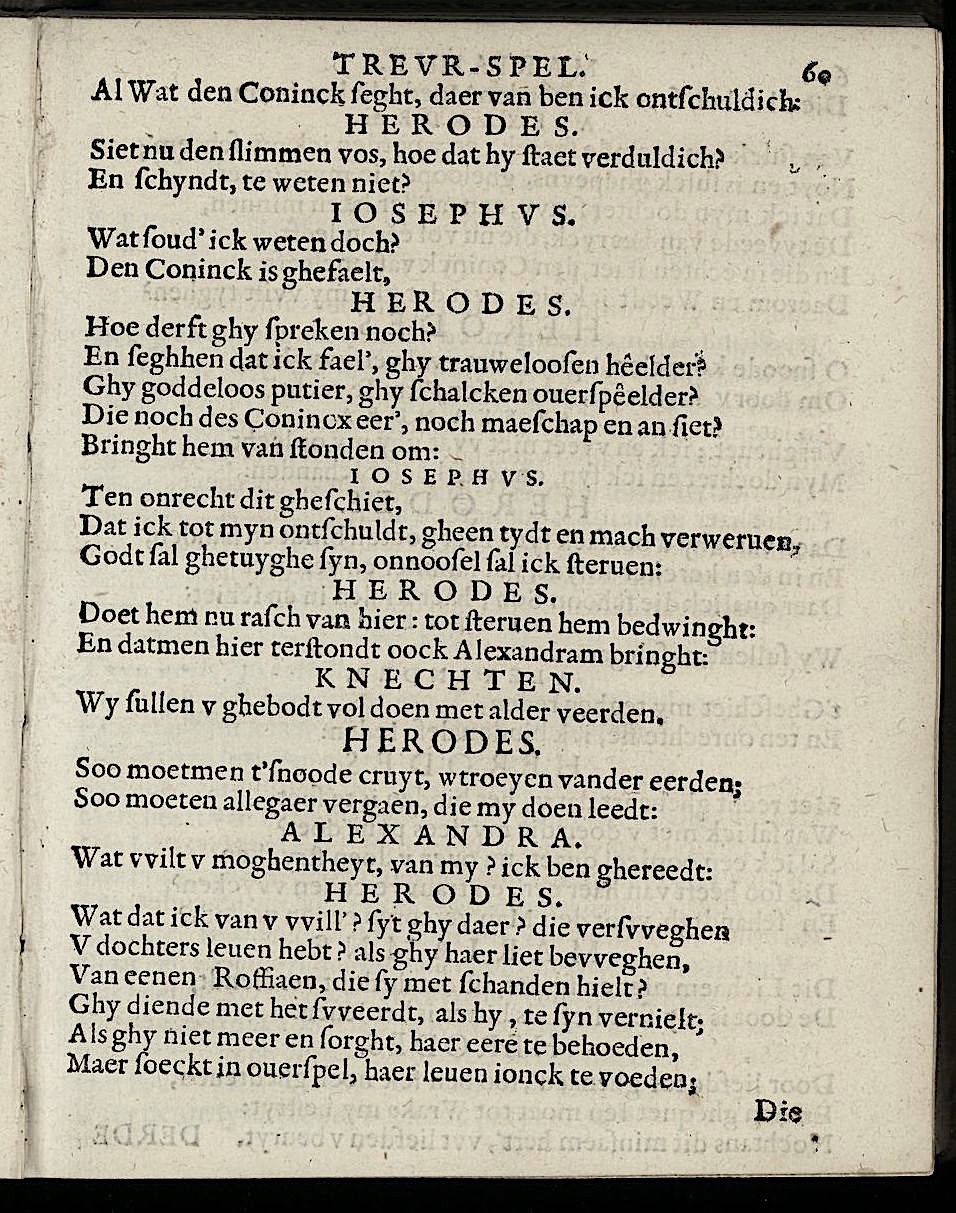 TREVR-SPEL. 60
Al Wat den Coninck ſeght, daer van ben ick ontſchuldich:
HERODES.
Siet nu den ſlimmen vos, hoe dat hy ſtaet verduldich?
En ſchyndt, te weten niet?
IOSEPHVS.
Wat ſoud' ick weten doch?
Den Coninck is ghefaelt,
HERODES.
Hoe derft ghy ſpreken noch?
En ſeghhen dat ick fael', ghy trauwelooſen hêelder?
Ghy goddeloos putier, ghy ſchalcken ouerſpêelder?
Die noch des Conincx eer', noch maeſchap en an ſiet?
Bringht hem van ſtonden om:
IOSEPHVS.
Ten onrecht dit gheſchiet,
Dat ick tot myn ontſchuldt, gheen tydt en mach verweruen,
Godt ſal ghetuyghe ſyn, onnooſel ſal ick ſteruen:
HERODES.
Doet hem nu raſch van hier: tot ſteruen hem bedwinght:
En datmen hier terſtondt oock Alexandram bringht:
KNECHTEN.
Wy ſullen v ghebodt vol doen met alder veerden.
HERODES.
Soo moetmen t'ſnoode cruyt, wtroeyen vander eerden;
Soo moeten allegaer vergaen, die my doen leedt:
ALEXANDRA.
Wat vvilt v moghentheyt, van my? ick ben ghereedt:
HERODES.
Wat dat ick van v vvill'? ſyt ghy daer? die verſvveghen
V dochters leuen hebt? als ghy haer liet bevveghen,
Van eenen Roffiaen, die ſy met ſchanden hielt?
Ghy diende met het ſvveerdt, als hy, te ſyn vernielt;
Als ghy niet meer en ſorght, haer eere te behoeden,
Maer ſoeckt in ouerſpel, haer leuen ionck te voeden;
Die